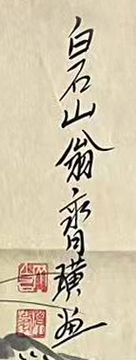 白石山翁齊璜画